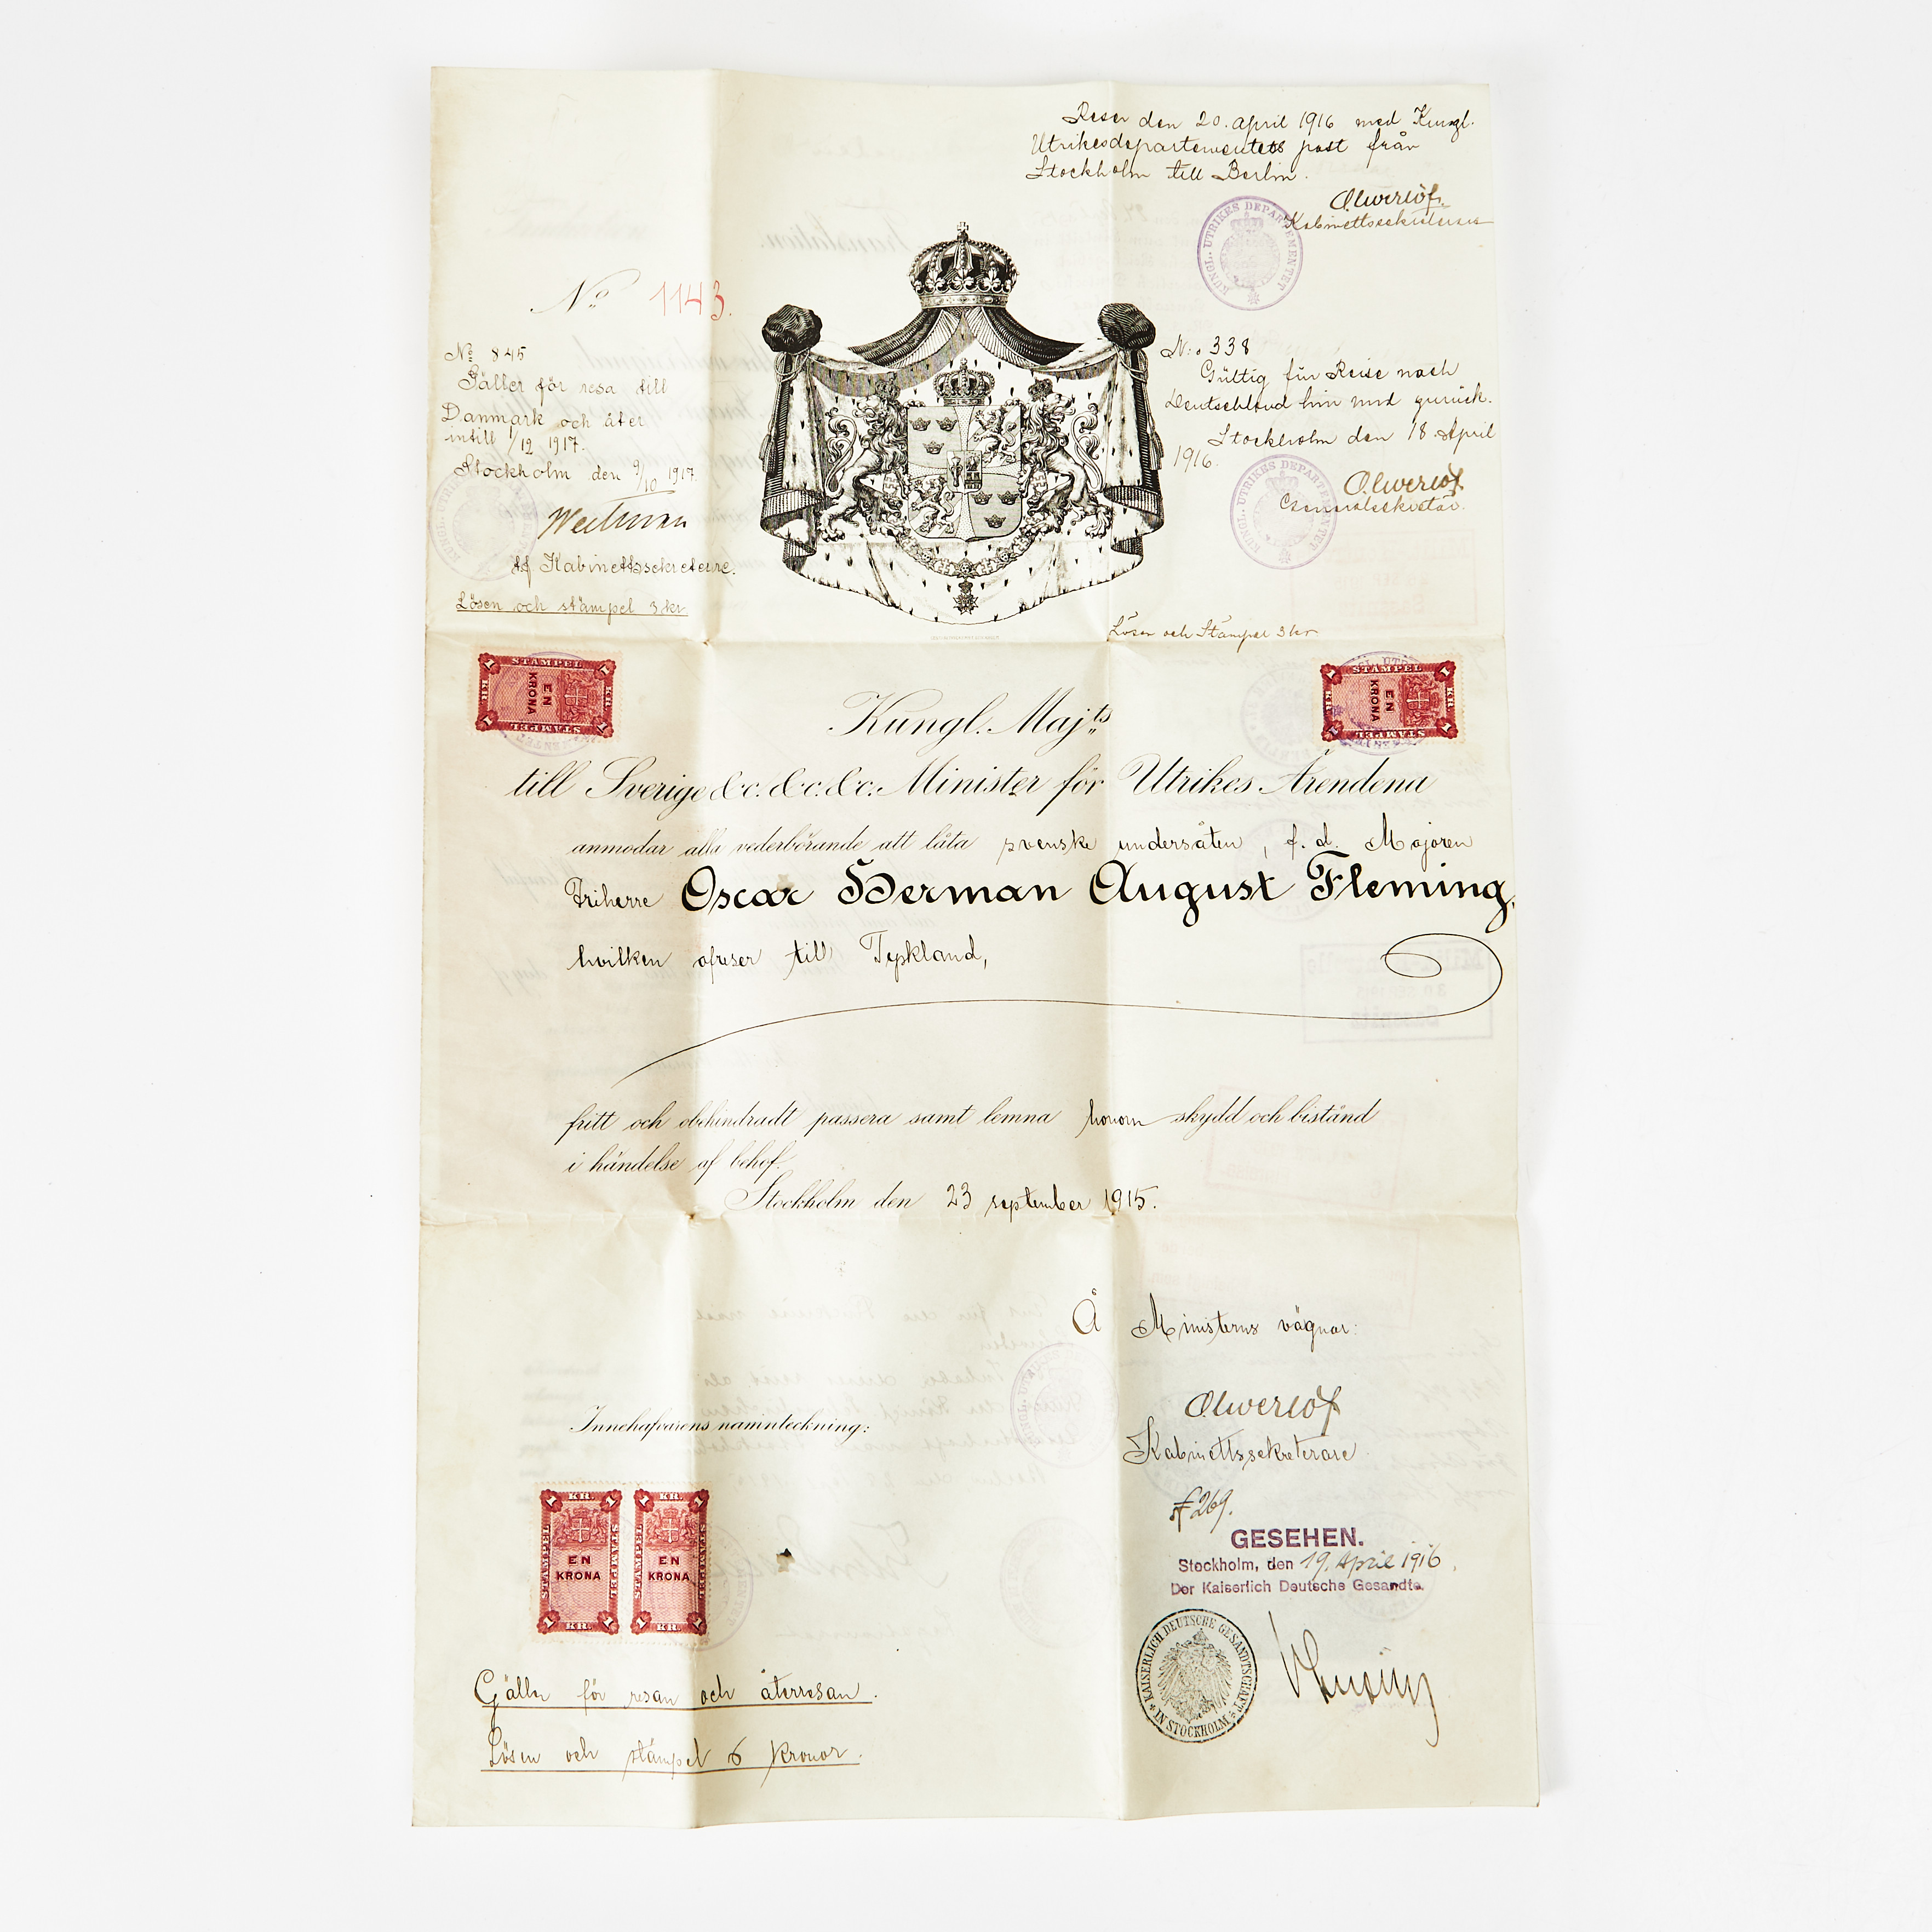 Reser den 20. april 1916 med Kungl.
Utrikesdepartementets post från
Stockholm till Berlin.
Kabinettssekreterare
KUNGL. UTRIKES DEPARTEMENTET
No 1143.
No 845
Gäller för resa till
Danmark och åter
intill 1/12 1917.
Stockholm den 9/10 1917.
tf Kabinettssekreterare.
Lösen och stämpel 3 kr.
N:o 338
Gültig für Reise nach
Deutschland hin und zurück.
Stockholm den 18 April
1916.
KUNGL. UTRIKES DEPARTEMENTET
Lösen och Stämpel 3 kr.
STAMPEL
EN
KRONA
1 KR.
STAMPEL
EN
KRONA
1 KR.
Kungl. Maj:ts
till Sverige &c. &c. &c. Minister för Utrikes Ärendena
anmodar alla vederbörande att låta svenske undersåten, f. d. Majoren
Friherre Oscar Herman August Fleming,
hvilken afreser till Tyskland,
fritt och obehindradt passera samt lemna honom skydd och bistånd
i händelse af behof.
Stockholm den 23 september 1915.
Å Ministerns vägnar:
Kabinettssekreterare
Innehafvarens namnteckning:
1 KR. 1 1 KR. 1
STAMPEL STAMPEL STAMPEL STAMPEL
EN EN
KRONA KRONA
1 KR. 1 1 KR. 1
№ 269.
GESEHEN.
Stockholm, den 19. April 1916.
Der Kaiserlich Deutsche Gesandte.
KAISERLICH DEUTSCHE GESANDTSCHAFT
* IN STOCKHOLM *
Gäller för resan och återresan.
Lösen och stämpel 6 Kronor.